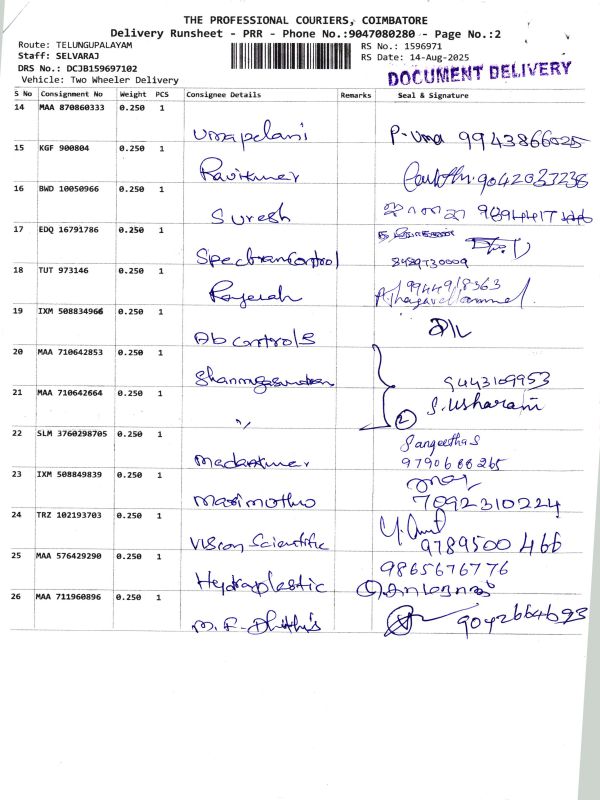 THE PROFESSIONAL COURIERS, COIMBATORE
Delivery Runsheet - PRR - Phone No.:9047080280 - Page No.:2
Route: TELUNGUPALAYAM
RS No.: 1596971
Staff: SELVARAJ
RS Date: 14-Aug-2025
DRS No.: DCJB159697102
DOCUMENT DELIVERY
Vehicle: Two Wheeler Delivery
S No Consignment No Weight PCS Consignee Details Remarks Seal & Signature
14 MAA 870860333 0.250 1
Umapelani P-Uma 9943866025
15 KGF 900804 0.250 1
Ravikumar 9042037238
16 BWD 10050966 0.250 1
Suresh
17 EDQ 16791786 0.250 1
Spectrum Control 8489730009
18 TUT 973146 0.250 1
Rajesh
19 IXM 508834966 0.250 1
Ab controls
20 MAA 710642853 0.250 1
Shanmugasundaram 9443109953
21 MAA 710642664 0.250 1
" 2 S. Usharani
22 SLM 3760298705 0.250 1
Sangeetha S
9790688265
23 IXM 508849839 0.250 1
Marimuthu 7092310224
24 TRZ 102193703 0.250 1
Vision Scientific 9789500466
25 MAA 576429290 0.250 1
9865676776
Hydraplastic
26 MAA 711960896 0.250 1
9042664693